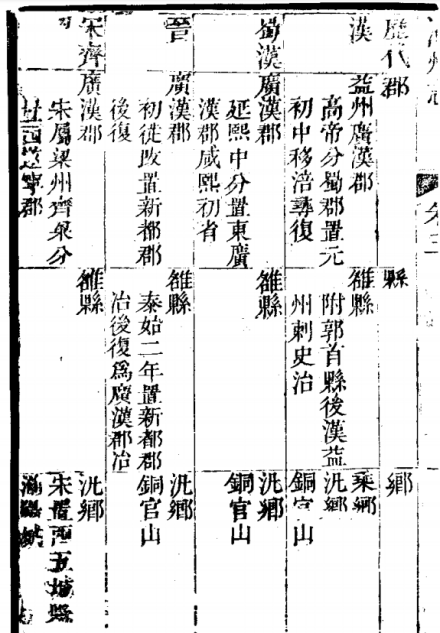 卷三
歷代郡
縣
鄉
漢
益州廣漢郡
高帝分蜀郡置元
初中移涪尋復
雒縣
附郭首縣後漢益
州刺史治
乘鄉
汎鄉
銅官山
蜀漢
廣漢郡
延熙中分置東廣
漢郡咸熙初省
雒縣
汎鄉
銅官山
晉
廣漢郡
初徙改置新都郡
後復
雒縣
泰始二年置新都郡
治後復爲廣漢郡治
汎鄉
銅官山
宋齊
廣漢郡
宋屬梁州齊梁分
西遂寧郡
雒縣
汎鄉
宋置西五城縣